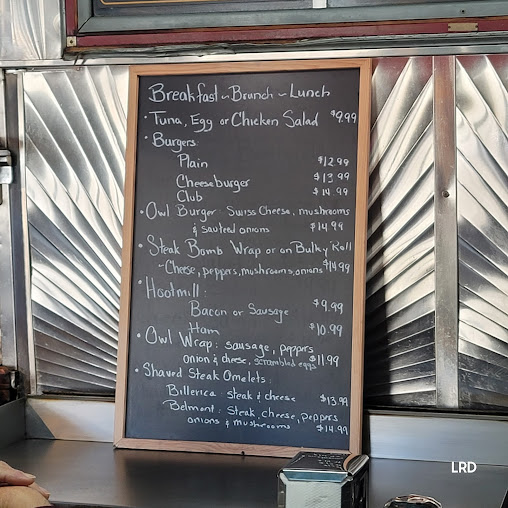 Breakfast ~ Brunch ~ Lunch
• Tuna, Egg or Chicken Salad $9.99
• Burgers:
Plain $12.99
Cheeseburger $13.99
Club $14.99
• Owl Burger: Swiss Cheese, mushrooms
& sauteed onions $14.99
• Steak Bomb Wrap or on Bulky Roll
~ Cheese, peppers, mushrooms, onions $14.99
• Hootmill:
Bacon or Sausage $9.99
Ham $10.99
• Owl Wrap: sausage, peppers
onion & cheese, scrambled eggs $11.99
• Shaved Steak Omelets:
Billerica: steak & cheese $13.99
Belmont: Steak, cheese, peppers
onions & mushrooms $14.99
LRD